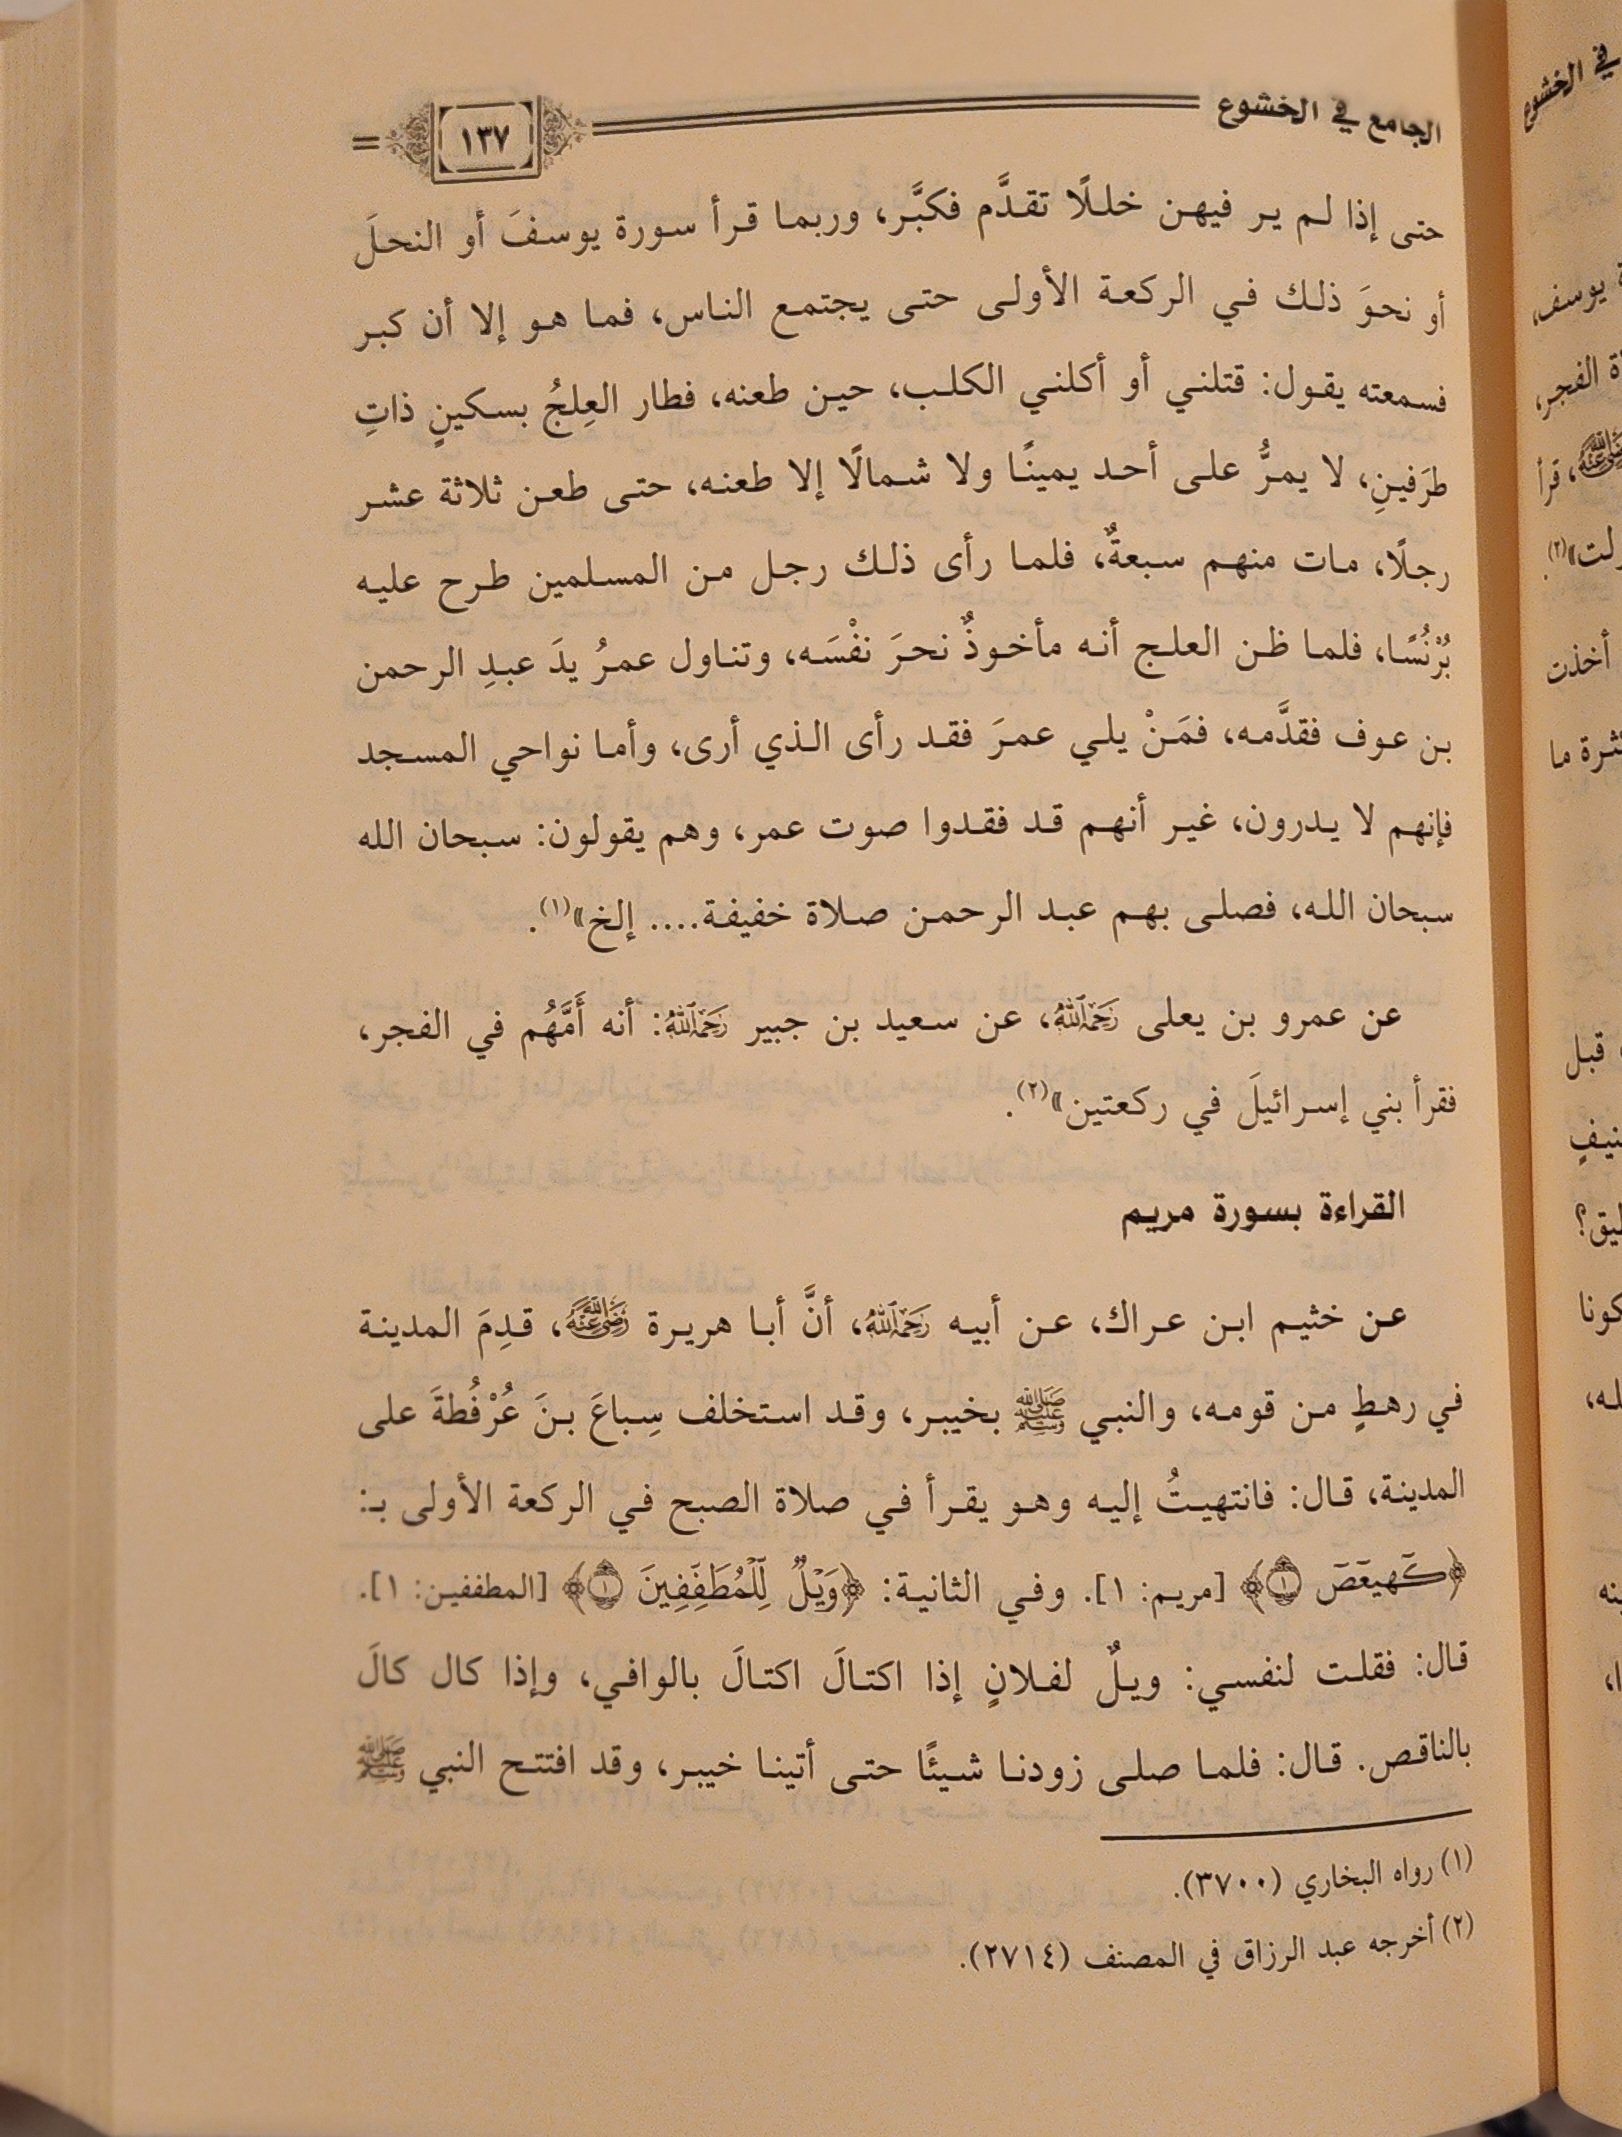 الجامع في الخشوع
١٣٧
حتى إذا لم ير فيهن خللًا تقدَّم فكبَّر، وربما قرأ سورة يوسفَ أو النحلَ
أو نحوَ ذلك في الركعة الأولى حتى يجتمع الناس، فما هو إلا أن كبر
فسمعته يقول: قتلني أو أكلني الكلب، حين طعنه، فطار العِلجُ بسكينٍ ذاتِ
طرَفينِ، لا يمرُّ على أحد يمينًا ولا شمالًا إلا طعنه، حتى طعن ثلاثة عشر
رجلًا، مات منهم سبعةٌ، فلما رأى ذلك رجل من المسلمين طرح عليه
بُرْنُسًا، فلما ظن العلج أنه مأخوذٌ نحرَ نفْسَه، وتناول عمرُ يدَ عبدِ الرحمن
بن عوف فقدَّمه، فمَنْ يلي عمرَ فقد رأى الذي أرى، وأما نواحي المسجد
فإنهم لا يدرون، غير أنهم قد فقدوا صوت عمر، وهم يقولون: سبحان الله
سبحان الله، فصلى بهم عبد الرحمن صلاة خفيفة.... إلخ»(١).
عن عمرو بن يعلى رَحِمَهُ اللَّهُ، عن سعيد بن جبير رَحِمَهُ اللَّهُ: أنه أَمَّهُم في الفجر،
فقرأ بني إسرائيلَ في ركعتين»(٢).
القراءة بسورة مريم
عن خثيم ابن عراك، عن أبيه رَحِمَهُ اللَّهُ، أنَّ أبا هريرة رَضِيَ اللَّهُ عَنْهُ، قدِمَ المدينة
في رهطٍ من قومه، والنبي ﷺ بخيبر، وقد استخلف سِباعَ بنَ عُرْفُطةَ على
المدينة، قال: فانتهيتُ إليه وهو يقرأ في صلاة الصبح في الركعة الأولى بـ:
﴿كٓهيعٓصٓ ١﴾ [مريم: ١]. وفي الثانية: ﴿وَيۡلٞ لِّلۡمُطَفِّفِينَ ١﴾ [المطففين: ١].
قال: فقلت لنفسي: ويلٌ لفلانٍ إذا اكتالَ اكتالَ بالوافي، وإذا كال كالَ
بالناقص. قال: فلما صلى زودنا شيئًا حتى أتينا خيبر، وقد افتتح النبي ﷺ
(١) رواه البخاري (٣٧٠٠).
(٢) أخرجه عبد الرزاق في المصنف (٢٧١٤).
في الخشوع
يوسف،
الفجر،
رَضِيَ اللَّهُ عَنْهُ، قرأ
أخذت
ما
قبل